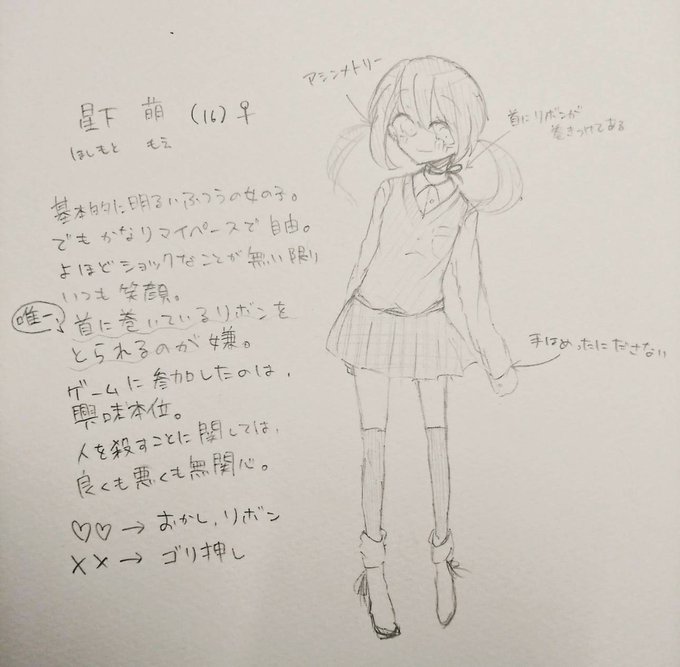 星下 萌 (16) ♀
ほしもと もえ
基本的に明るいふつうの女の子。
でもかなりマイペースで自由。
よほどショックなことが無い限り
いつも笑顔。
唯一、首に巻いているリボンを
とられるのが嫌。
ゲームに参加したのは、
興味本位。
人を殺すことに関しては、
良くも悪くも無関心。
♡♡→おかし、リボン
××→ゴリ押し
アシンメトリー
首にリボンが
巻きつけてある
手はめったにださない